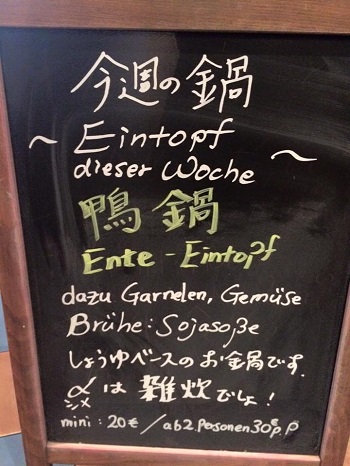 今週の鍋
~ Eintopf
dieser Woche ~
鴨鍋
Ente - Eintopf
dazu Garnelen, Gemüse
Brühe: Sojasoße
しょうゆベースのお鍋です
〆は雑炊でしょ!
シメ
mini: 20€ / ab 2 Posonen 30€ p.P